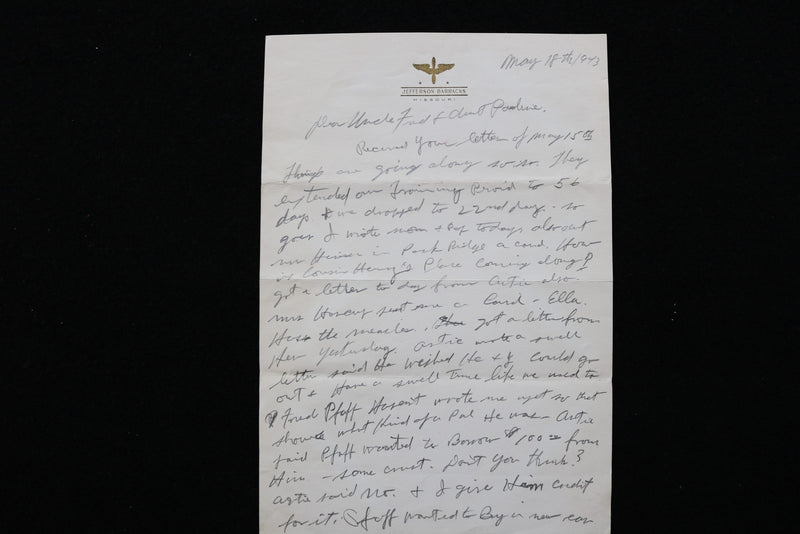 May 18th 1943
JEFFERSON BARRACKS
MISSOURI
Dear Uncle Fred & Aunt Pauline.
Received Your letter of May 15th
Things are going along so so. They
extended our Training Proid to 56
days & we dropped to 22nd day. - so
goes I wrote mom & Pop today also sent
mr in Park Ridge a card. How
is Cousin Henry's Place Coming along?
got a letter to day from Artie also.
mrs sent me a Card - Ella.
Has the measles. got a letter from
Her Yesterday. Artie wrote a swell
letter said He Wished He & I Could go
out & Have a swell Time like we used to
Fred Pfaff Hasent wrote me yet so that
shows what Kind of a Pal He was - Artie
said Pfaff wanted to Borrow $100 from
Him - some crust. Don't You think?
artie said No. & I give Him Credit
for it. Pfaff wanted to Buy a new car